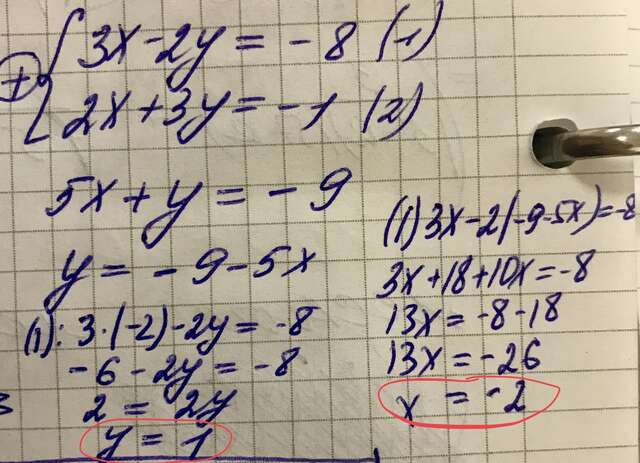 + { 3x-2y = -8 (1)
2x+3y = -1 (2)
5x+y = -9
y = -9-5x
(1): 3·(-2)-2y = -8
-6-2y = -8
2 = 2y
y = 1
(1) 3x-2(-9-5x)=-8
3x+18+10x=-8
13x = -8-18
13x = -26
x = -2